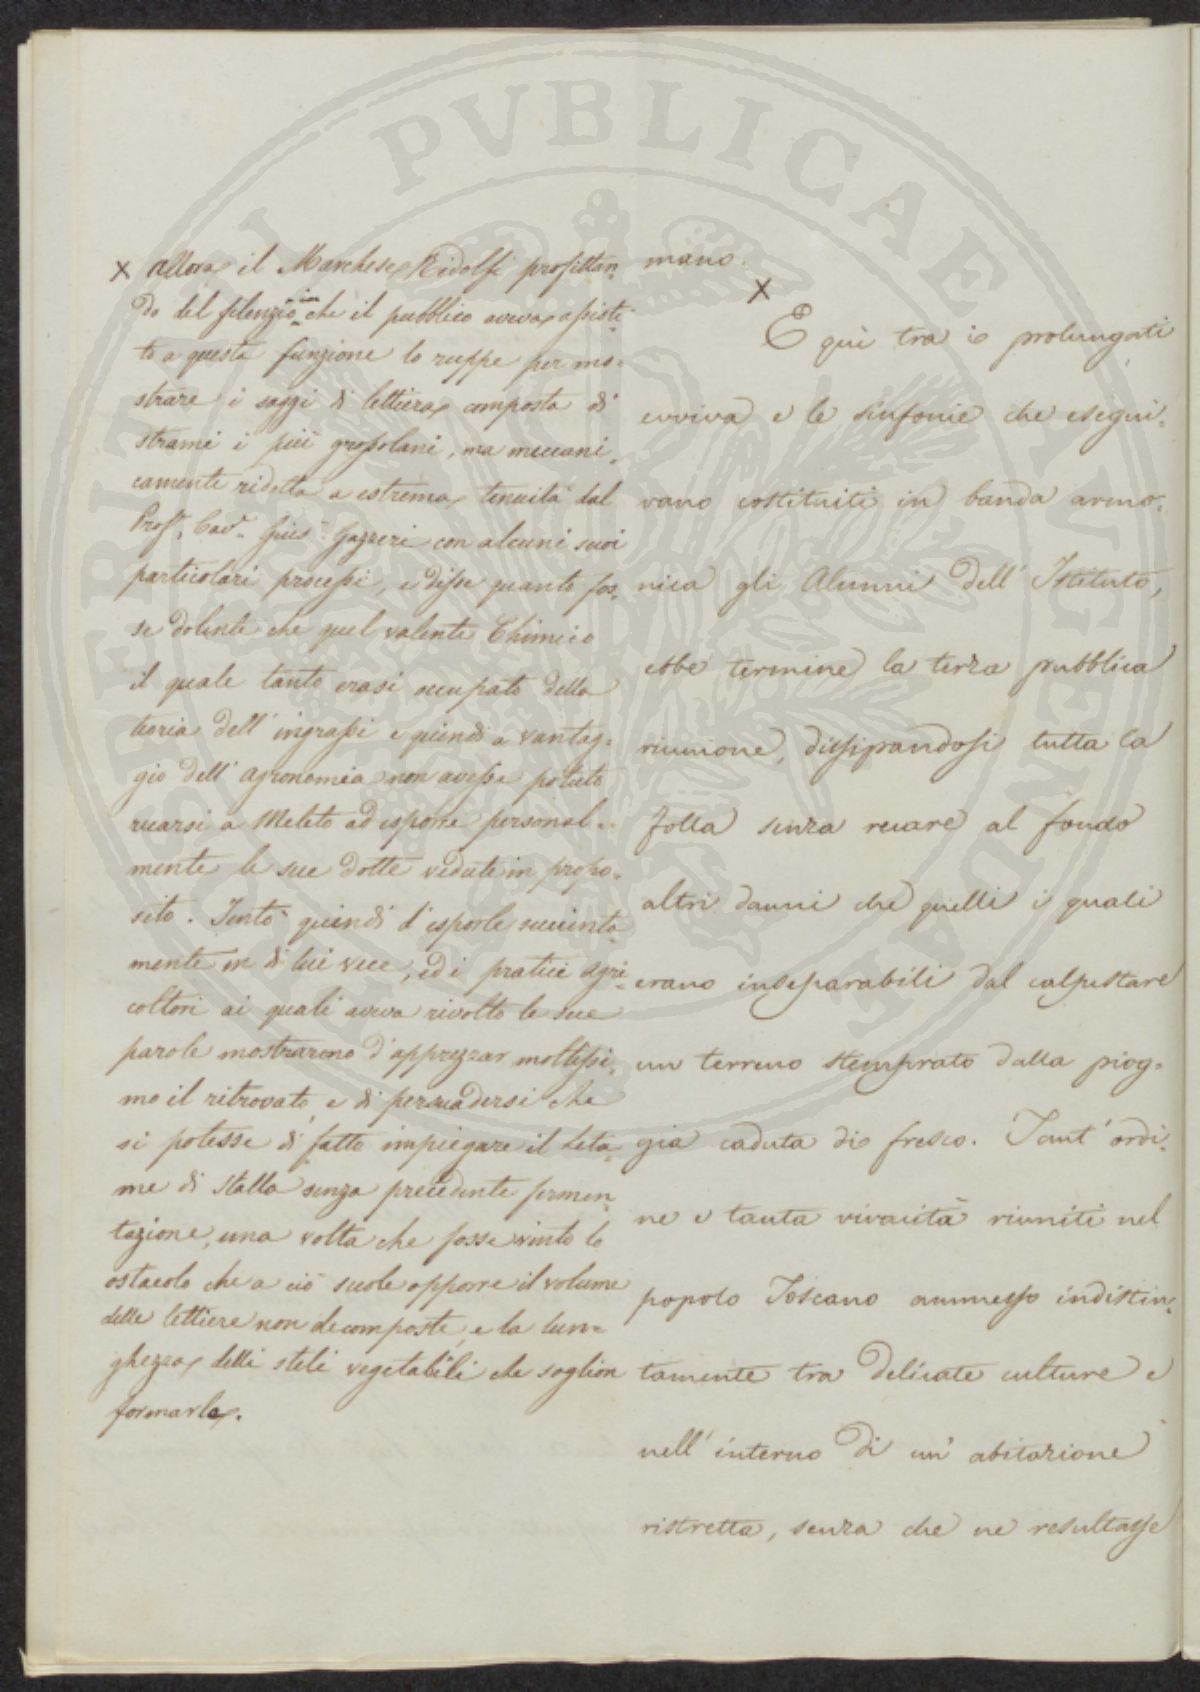 PVBLICAE
X allora il Marchese Ridolfi profittan-
do del silenzio in che il pubblico aveva assisti-
to a questa funzione lo ruppe per mo-
strare i saggi di lettiera composta di
strami i più grossolani, ma meccani-
camente ridotta a estrema tenuità dal
Prof.r Cav.r Gius.e Gazzeri con alcuni suoi
particolari processi, e disse quanto fos-
se dolente che quel valente Chimico
il quale tanto erasi occupato della
teoria dell' ingrassi e quindi a vantag-
gio dell' agronomia non avesse potuto
recarsi a Meleto ad esporre personal-
mente le sue dotte vedute in propo-
sito. Tentò quindi d'esporle succinta-
mente in di lui vece, ed i pratici agri-
coltori ai quali aveva rivolto le sue
parole mostrarono d'apprezzar moltissi-
mo il ritrovato, e di persuadersi che
si potesse di fatto impiegare il leta-
me di stalla senza precedente fermen-
tazione, una volta che fosse vinto lo
ostacolo che a ciò suole opporre il volume
delle lettiere non decomposte, e la lun-
ghezza delli steli vegetabili che soglion
formarla.
mano.
X
E quì tra i prolungati
evviva e le sinfonie che esegui-
vano costituiti in banda armo-
nica gli Alunni dell' Istituto,
ebbe termine la terza pubblica
riunione, dissipandosi tutta la
folla senza recare al fondo
altri danni che quelli i quali
erano inseparabili dal calpestare
un terreno stemprato dalla piog-
gia caduta di fresco. Tant' ordi-
ne e tanta vivacità riuniti nel
popolo Toscano ammesso indistin-
tamente tra delicate culture e
nell' interno di un' abitazione
ristretta, senza che ne resultasse